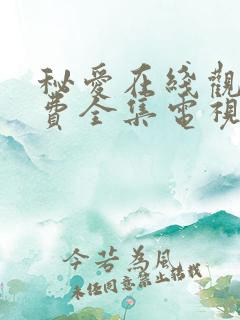 秘愛在綫觀
費全集電視
今若為風
未经同意禁止转载